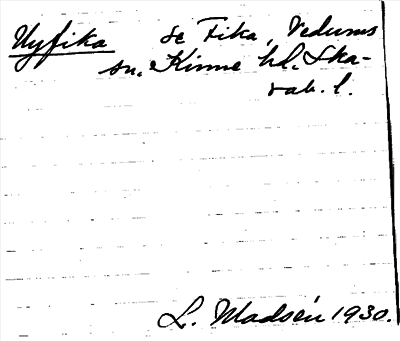 Nyfika se Fika, Vedums
sn. Kinne hd. Ska-
rab. l.
L. Madsén 1930.